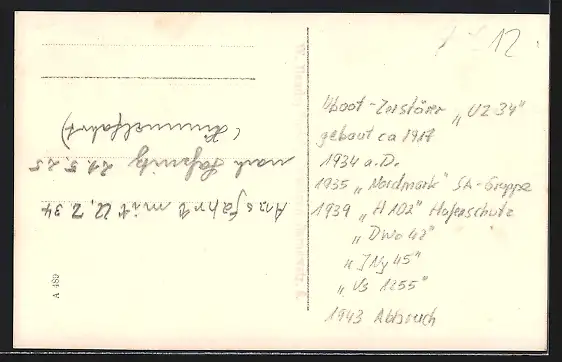 12
Uboot-Zerstörer "UZ 34"
gebaut ca 1917
1934 a.D.
1935 "Nordmark" SA-Gruppe
1939 "H 102" Hafenschutz
"DWo 42"
"JNy 45"
"Vs 1255"
1943 Abbruch
Ausfahrt mit U.Z 34
nach Saßnitz 21.5.25
(Himmelfahrt)
A 489